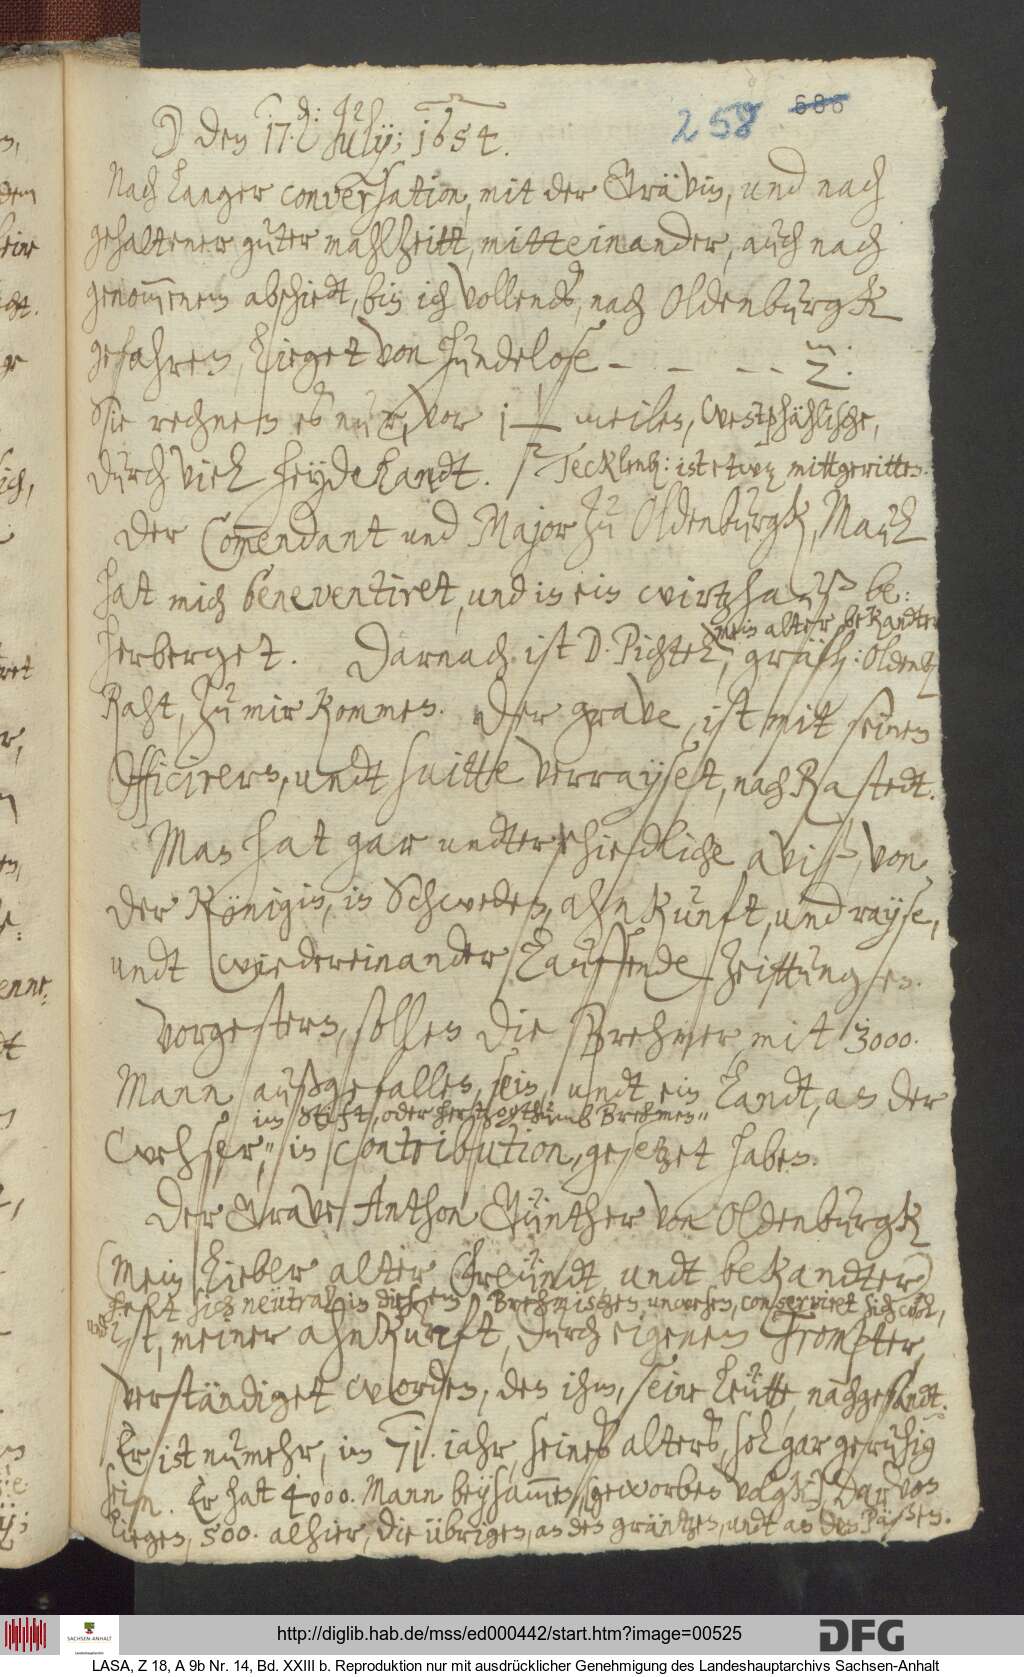 258 686
☽ den 17. July; 1654.
Nach langer conversation, mit der Grävin, und nach
gehaltener guter mahlzeitt, mitteinander, auch nach
genom̅enem abschiedt, bin ich vollends, nach Oldenburgk
gefahren, lieget von Hundelose - - - - 2.
Sie rechnen es nur, vor 1 1/2 meilen, westphählische,
durch viel heydelandt. Tecklenb: ist etwaß mittgeritten.
Der Com̅endant und Major zu Oldenburgk, Mauck
hat mich beneventiret, und in ein wirtzhauß be:
herberget. Darnach ist D. Pichtel,
mein alter bekandter
gräfl: Oldenb:
Raht, zu mir kommen. Der grave, ist mit seinen
Officirern, undt suitte verrayset, nach Rastedt.
Man hat gar undterschiedliche avisen, von
der Königin, in Schweden, ahnkunft, und rayse,
undt wiedereinander lauffende zeittungen.
Vorgestern, sollen die Brehmer, mit 3000.
Mann außgefallen sein, undt ein Landt, an der
im Stift, oder herzogthumb Brehmen"
Wehser," in contribution, gesetzet haben.
Der Grave Anthon Günther von Oldenburgk
(mein lieber alter Freündt, undt bekandter)
helt sich neütral in diesem Brehmischen unwesen, conserviret sich wol,
ist, meiner ahnkunft, durch eigenen Trompter,
verständiget worden, den ihm, seine leütte, nachgesandt.
Er ist numehr, im 71. iahr, seines alters, sol gar geruhig
sein. Er hat 4000. Mann beysam̅en, (geworben volgk) Darvon
liegen, 500. alhier, die übrigen, an den gräntzen, undt an den Päßen.
http://diglib.hab.de/mss/ed000442/start.htm?image=00525
SACHSEN-ANHALT
DFG
LASA, Z 18, A 9b Nr. 14, Bd. XXIII b. Reproduktion nur mit ausdrücklicher Genehmigung des Landeshauptarchivs Sachsen-Anhalt